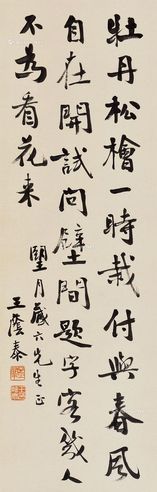 牡丹松檜一時栽付與春風
自在開試問壁間題字客幾人
不為看花来
壆月藏六先生正
王蔭泰